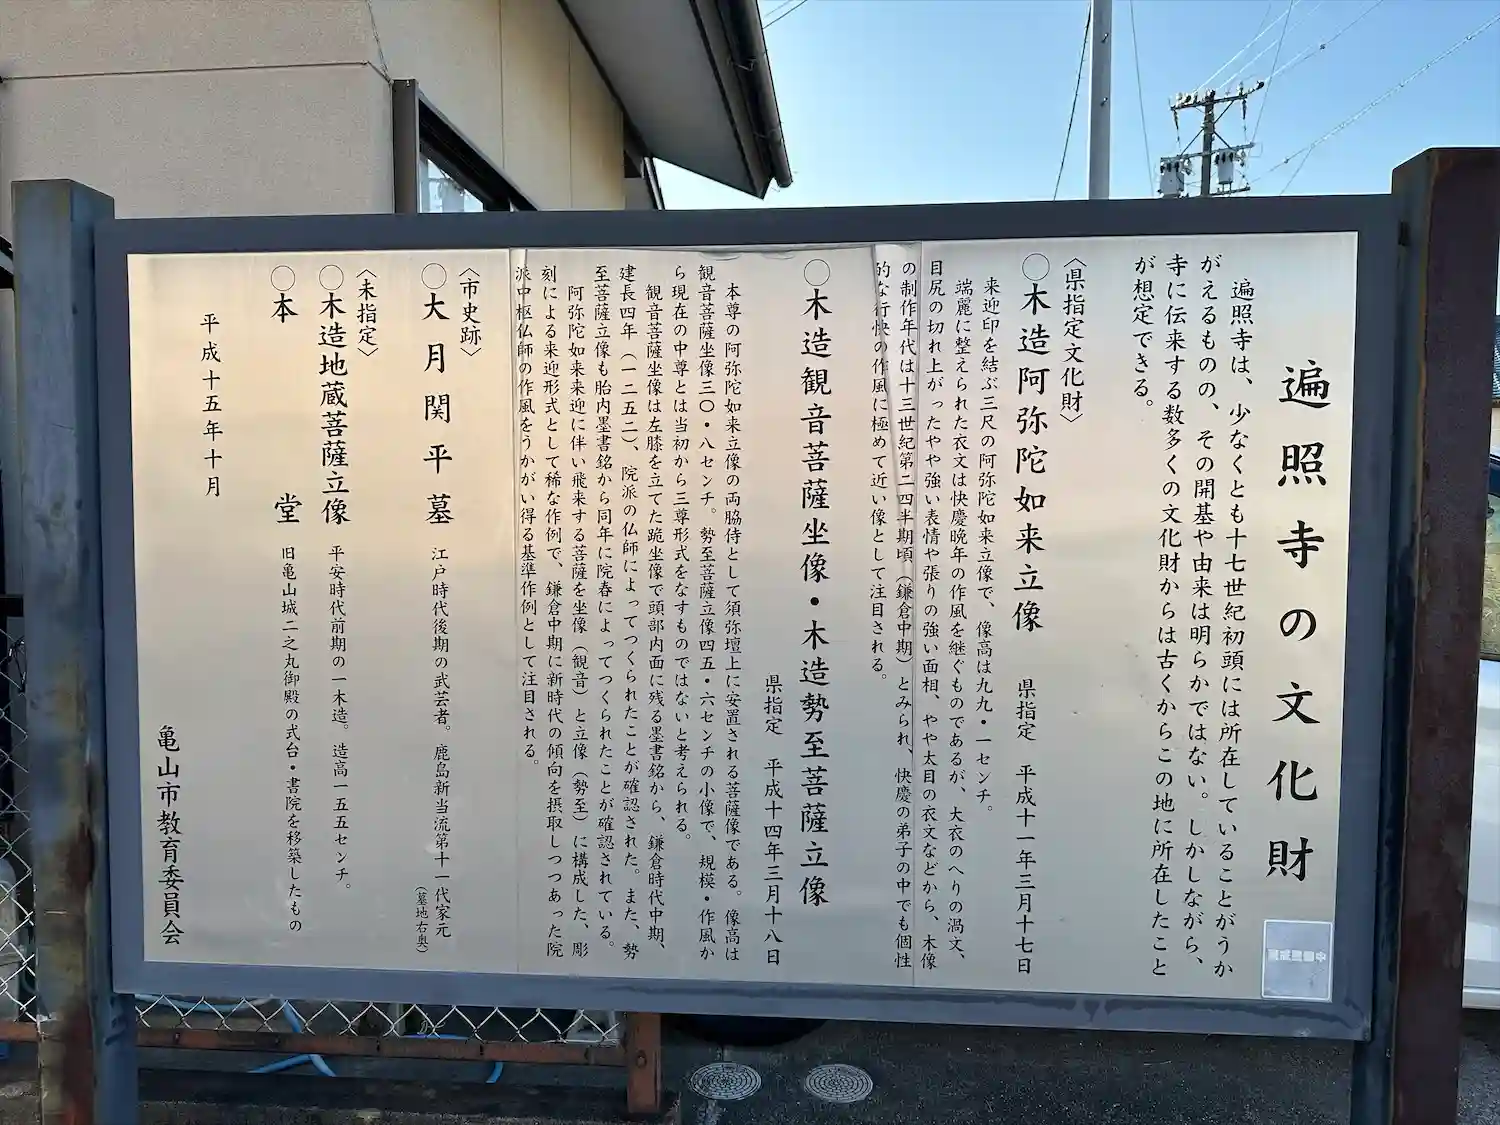 遍照寺の文化財
遍照寺は、少なくとも十七世紀初頭には所在していることがうか
がえるものの、その開基や由来は明らかではない。しかしながら、
寺に伝来する数多くの文化財からは古くからこの地に所在したこと
が想定できる。
〈県指定文化財〉
○木造阿弥陀如来立像 県指定 平成十一年三月十七日
来迎印を結ぶ三尺の阿弥陀如来立像で、像高は九九・一センチ。
端麗に整えられた衣文は快慶晩年の作風を継ぐものであるが、大衣のへりの渦文、
目尻の切れ上がったやや強い表情や張りの強い面相、やや太目の衣文などから、本像
の制作年代は十三世紀第二四半期頃（鎌倉中期）とみられ、快慶の弟子の中でも個性
的な行快の作風に極めて近い像として注目される。
○木造観音菩薩坐像・木造勢至菩薩立像
県指定 平成十四年三月十八日
本尊の阿弥陀如来立像の両脇侍として須弥壇上に安置される菩薩像である。像高は
観音菩薩坐像三〇・八センチ。勢至菩薩立像四五・六センチの小像で、規模・作風か
ら現在の中尊とは当初から三尊形式をなすものではないと考えられる。
観音菩薩坐像は左膝を立てた跪坐像で頭部内面に残る墨書銘から、鎌倉時代中期、
建長四年（一二五二）、院派の仏師によってつくられたことが確認された。また、勢
至菩薩立像も胎内墨書銘から同年に院春によってつくられたことが確認されている。
阿弥陀如来来迎に伴い飛来する菩薩を坐像（観音）と立像（勢至）に構成した、彫
刻による来迎形式として稀な作例で、鎌倉中期に新時代の傾向を摂取しつつあった院
派中枢仏師の作風をうかがい得る基準作例として注目される。
〈市史跡〉
○大月関平墓 江戸時代後期の武芸者。鹿島新当流第十一代家元
（墓地右奥）
〈未指定〉
○木造地蔵菩薩立像 平安時代前期の一木造。造高一五五センチ。
○本堂 旧亀山城二之丸御殿の式台・書院を移築したもの
平成十五年十月
亀山市教育委員会